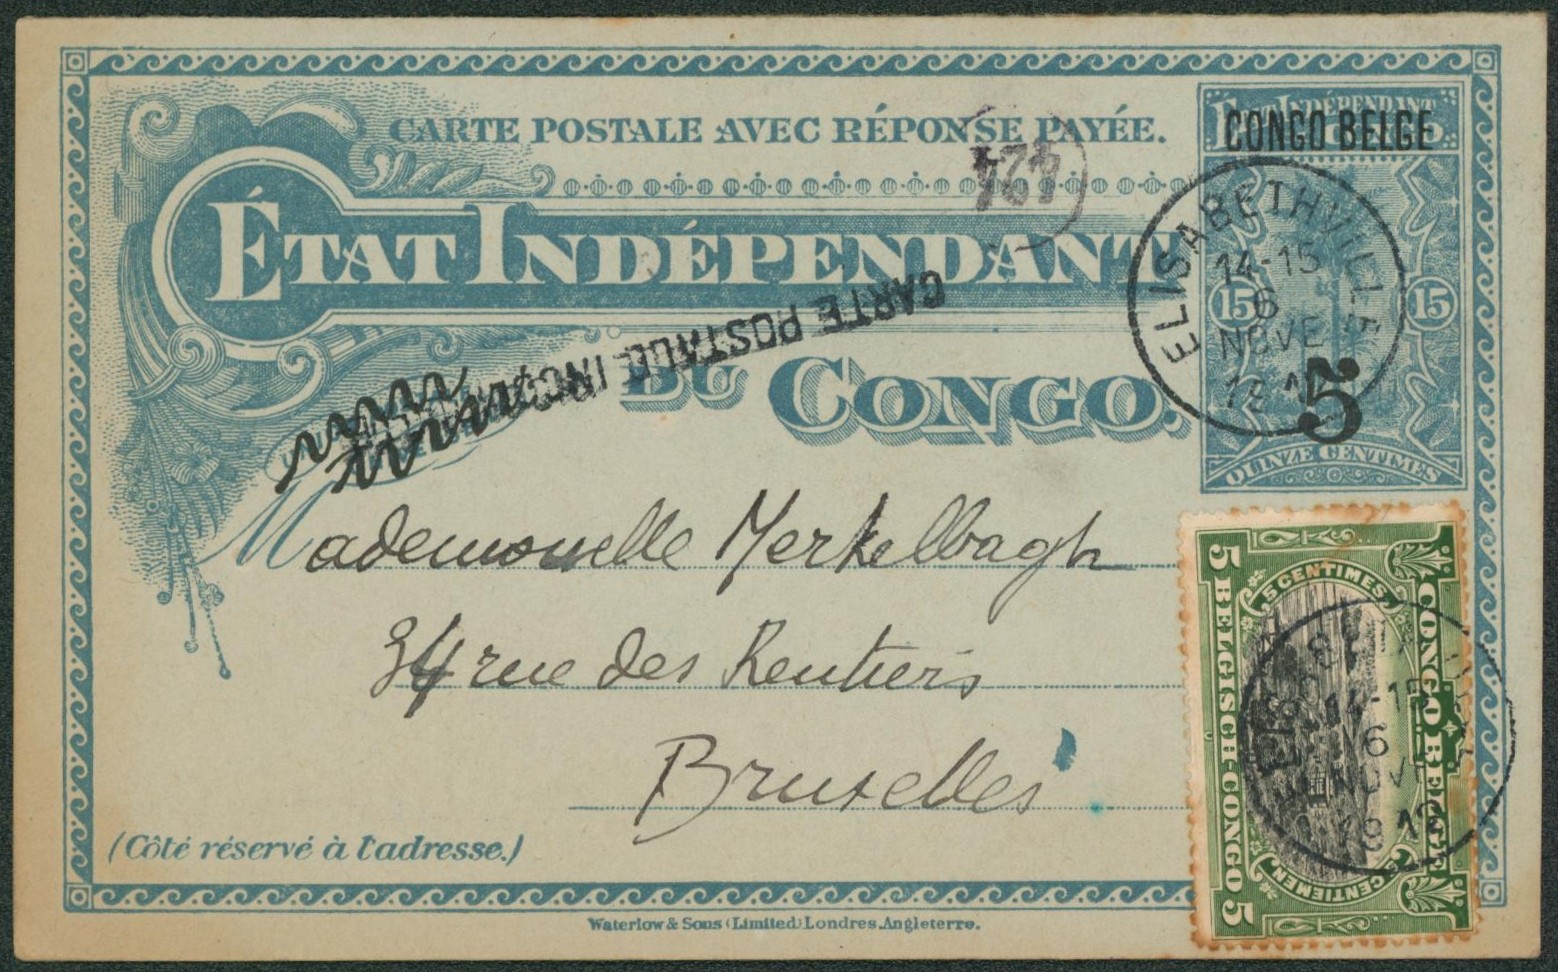 CARTE POSTALE AVEC RÉPONSE PAYÉE.
ÉTAT INDÉPENDANT
DU CONGO.
ÉTAT INDÉPENDANT
CONGO BELGE
15 15
5
QUINZE CENTIMES
ELISABETHVILLE
14-15
6
NOVE
424
CARTE POSTALE
Mademoiselle Merkelbagh
34 rue des Rentiers
Bruxelles
(Côté réservé à l'adresse.)
Waterlow & Sons (Limited) Londres. Angleterre.
CONGO BELGE
5 CENTIMES
5 CENTIEMEN
5 BELGISCH-CONGO 5
14-15
6
NOVE